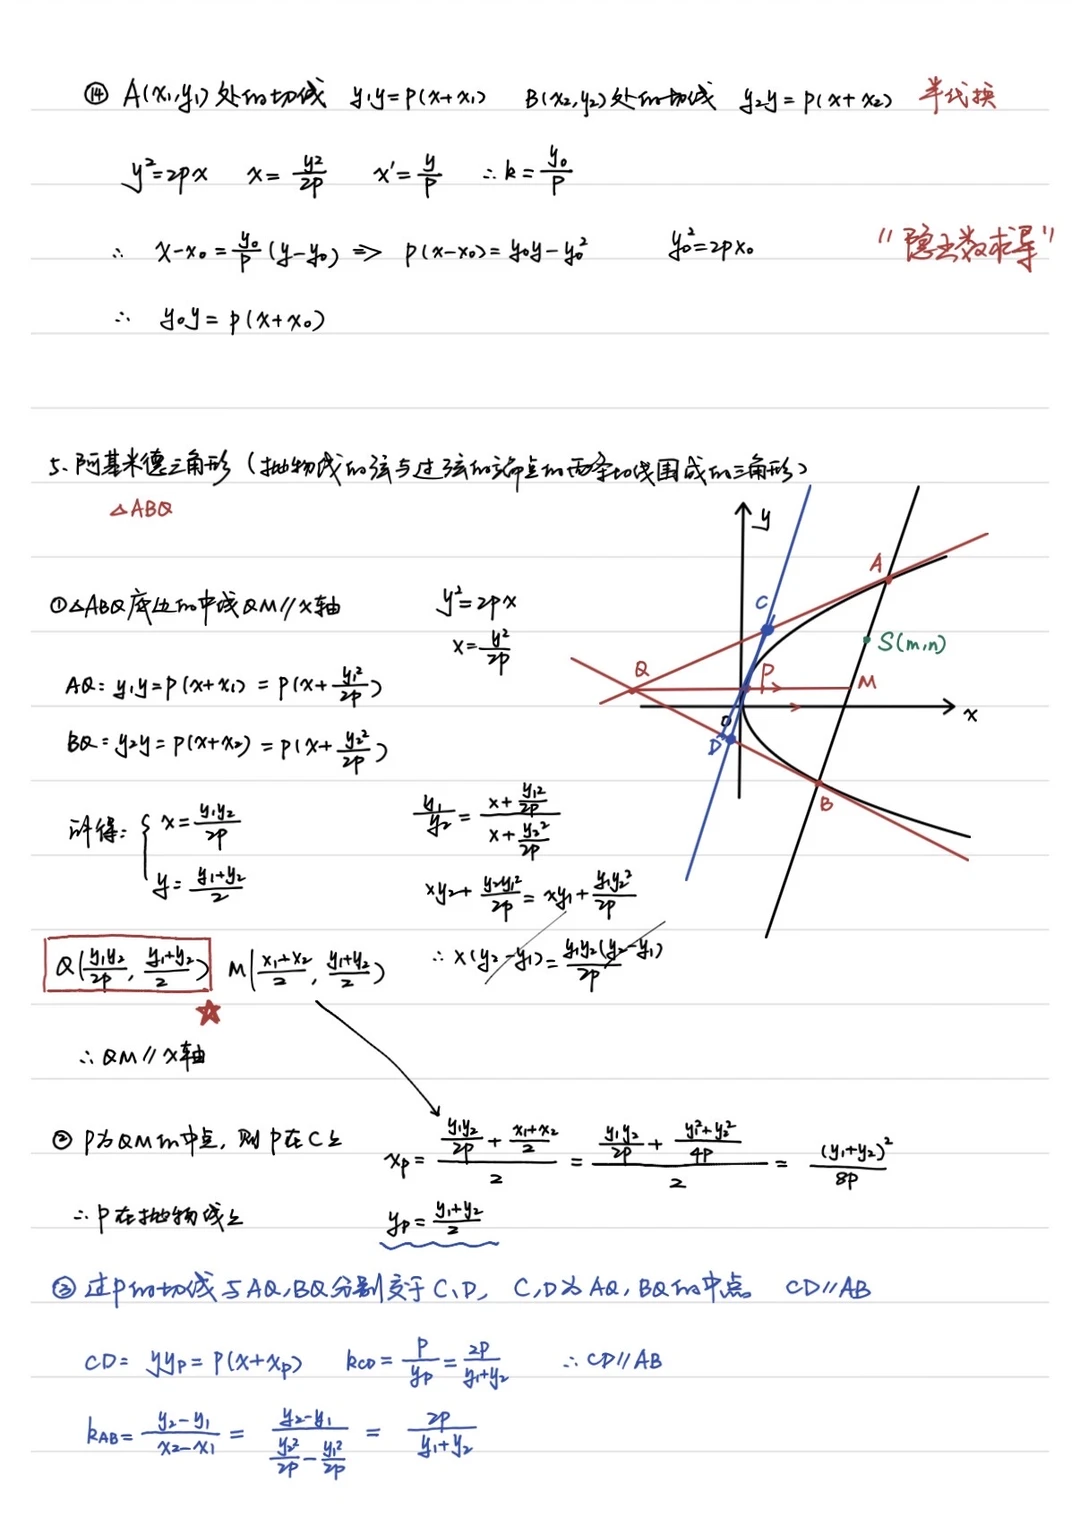 ⑭ A(x₁,y₁)处的切线 y₁y=p(x+x₁) B(x₂,y₂)处的切线 y₂y=p(x+x₂) 半代换
y²=2px x=y²/2p x'=y/p ∴k=y₀/p
∴ x-x₀=y₀/p(y-y₀) ⇒ p(x-x₀)=y₀y-y₀² y₀²=2px₀ "隐函数求导"
∴ y₀y=p(x+x₀)
5、阿基米德三角形(抛物线的弦与过弦的端点的两条切线围成的三角形)
△ABQ
①△ABQ底边的中线QM∥x轴 y²=2px
x=y²/2p
AQ: y₁y=p(x+x₁)=p(x+y₁²/2p)
BQ=y₂y=p(x+x₂)=p(x+y₂²/2p)
解得: { x=y₁y₂/2p
y=(y₁+y₂)/2
y₁/y₂=(x+y₁²/2p)/(x+y₂²/2p)
xy₂+y₂y₁²/2p=xy₁+y₁y₂²/2p
∴x(y₂-y₁)=y₁y₂(y₂-y₁)/2p
Q(y₁y₂/2p, (y₁+y₂)/2) M((x₁+x₂)/2, (y₁+y₂)/2)
∴QM∥x轴
y
A
C
S(m,n)
Q
P
M
O
x
D
B
②P为QM的中点,则P在C上 xp=(y₁y₂/2p+(x₁+x₂)/2)/2=(y₁y₂/2p+(y₁²+y₂²)/4p)/2=(y₁+y₂)²/8p
∴P在抛物线上 yp=(y₁+y₂)/2
③过P的切线与AQ,BQ分别交于C、D, C,D为AQ,BQ的中点 CD∥AB
CD= yyp=p(x+xp) kCD=p/yp=2p/(y₁+y₂) ∴CD∥AB
kAB=(y₂-y₁)/(x₂-x₁)=(y₂-y₁)/(y₂²/2p-y₁²/2p)=2p/(y₁+y₂)